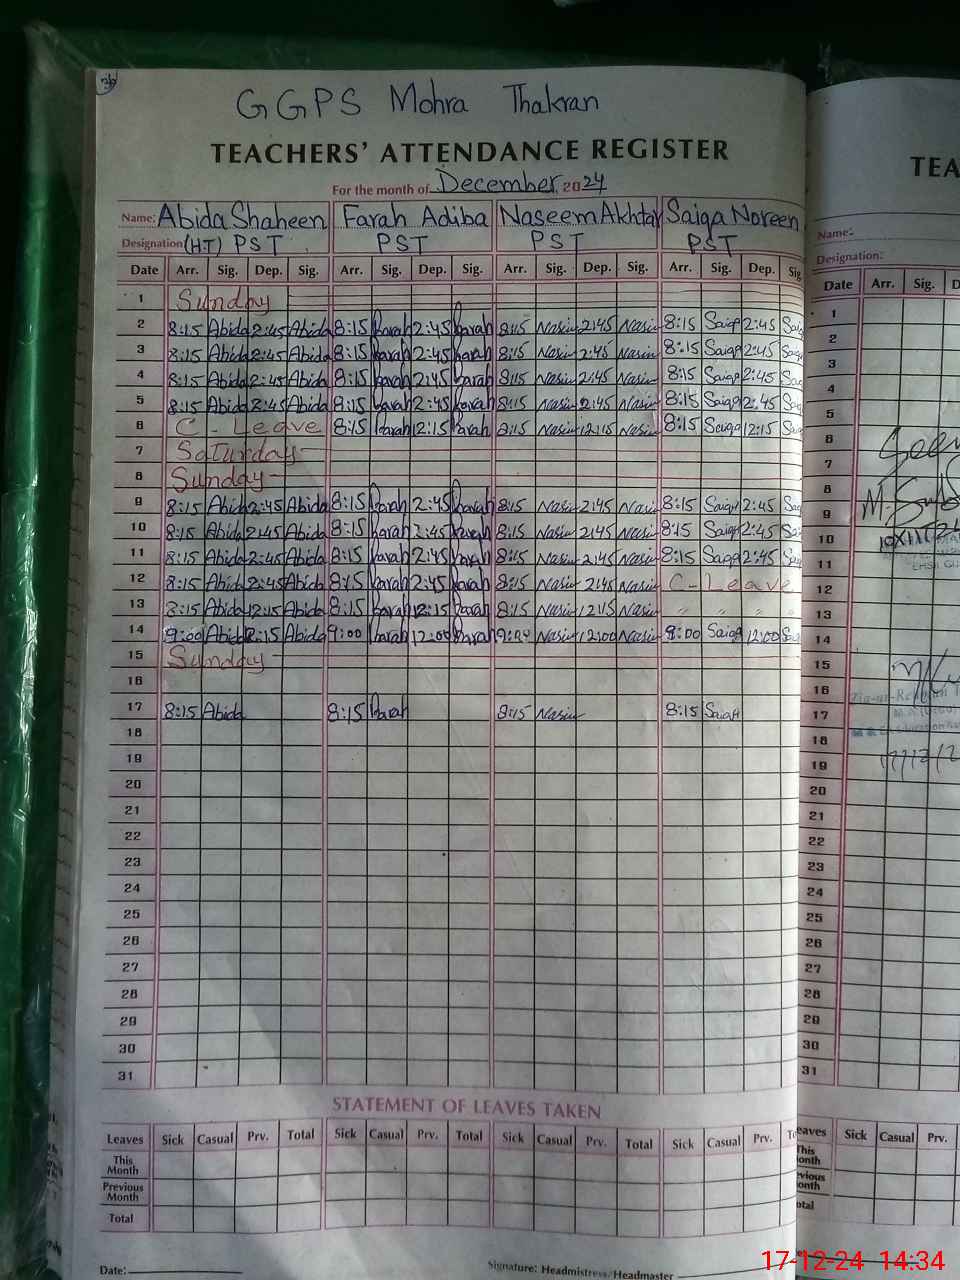 GGPS Mohra Thakran
TEACHERS' ATTENDANCE REGISTER
For the month of December 2024
Name: Abida Shaheen Farah Adiba Naseem Akhtar Saiqa Noreen
Designation (H.T) PST PST PST PST
Date Arr. Sig. Dep. Sig. Arr. Sig. Dep. Sig. Arr. Sig. Dep. Sig. Arr. Sig. Dep. Sig
1 Sunday
2 8:15 Abida 2:45 Abida 8:15 Farah 2:45 Farah 8:15 Nasim 2:45 Nasim 8:15 Saiqa 2:45 Sai
3 8:15 Abida 2:45 Abida 8:15 Farah 2:45 Farah 8:15 Nasim 2:45 Nasim 8:15 Saiqa 2:45 Sa
4 8:15 Abida 2:45 Abida 8:15 Farah 2:45 Farah 8:15 Nasim 2:45 Nasim 8:15 Saiqa 2:45 Sa
5 8:15 Abida 2:45 Abida 8:15 Farah 2:45 Farah 8:15 Nasim 2:45 Nasim 8:15 Saiqa 2:45 Sa
6 C - Leave 8:15 Farah 12:15 Farah 8:15 Nasim 12:15 Nasim 8:15 Saiqa 12:15 Sai
7 Saturday
8 Sunday
9 8:15 Abida 2:45 Abida 8:15 Farah 2:45 Farah 8:15 Nasim 2:45 Nasim 8:15 Saiqa 2:45 Sa
10 8:15 Abida 2:45 Abida 8:15 Farah 2:45 Farah 8:15 Nasim 2:45 Nasim 8:15 Saiqa 2:45 Sai
11 8:15 Abida 2:45 Abida 8:15 Farah 2:45 Farah 8:15 Nasim 2:45 Nasim 8:15 Saiqa 2:45 Sa
12 8:15 Abida 2:45 Abida 8:15 Farah 2:45 Farah 8:15 Nasim 2:45 Nasim C - Leave
13 8:15 Abida 12:15 Abida 8:15 Farah 12:15 Farah 8:15 Nasim 12:15 Nasim " " " "
14 9:00 Abida Abida 9:00 Farah 12:00 Farah Nasim 12:00 Nasim 9:00 Saiqa 12:00 Sa
15 Sunday
16
17 8:15 Abida 8:15 Farah 8:15 Nasim 8:15 Saiqa
18
19
20
21
22
23
24
25
26
27
28
29
30
31
STATEMENT OF LEAVES TAKEN
Leaves Sick Casual Prv. Total Sick Casual Prv. Total Sick Casual Prv. Total Sick Casual Prv.
This Month
Previous Month
Total
Date:
Signature: Headmistress/Headmaster
TEA
Name:
Designation:
Date Arr. Sig. D
1
2
3
4
5
6
7
8
9
10
11
12
13
14
15
16
17
18
19
20
21
22
23
24
25
26
27
28
29
30
31
eaves Sick Casual Prv.
This onth
vious onth
otal
17-12-24 14:34